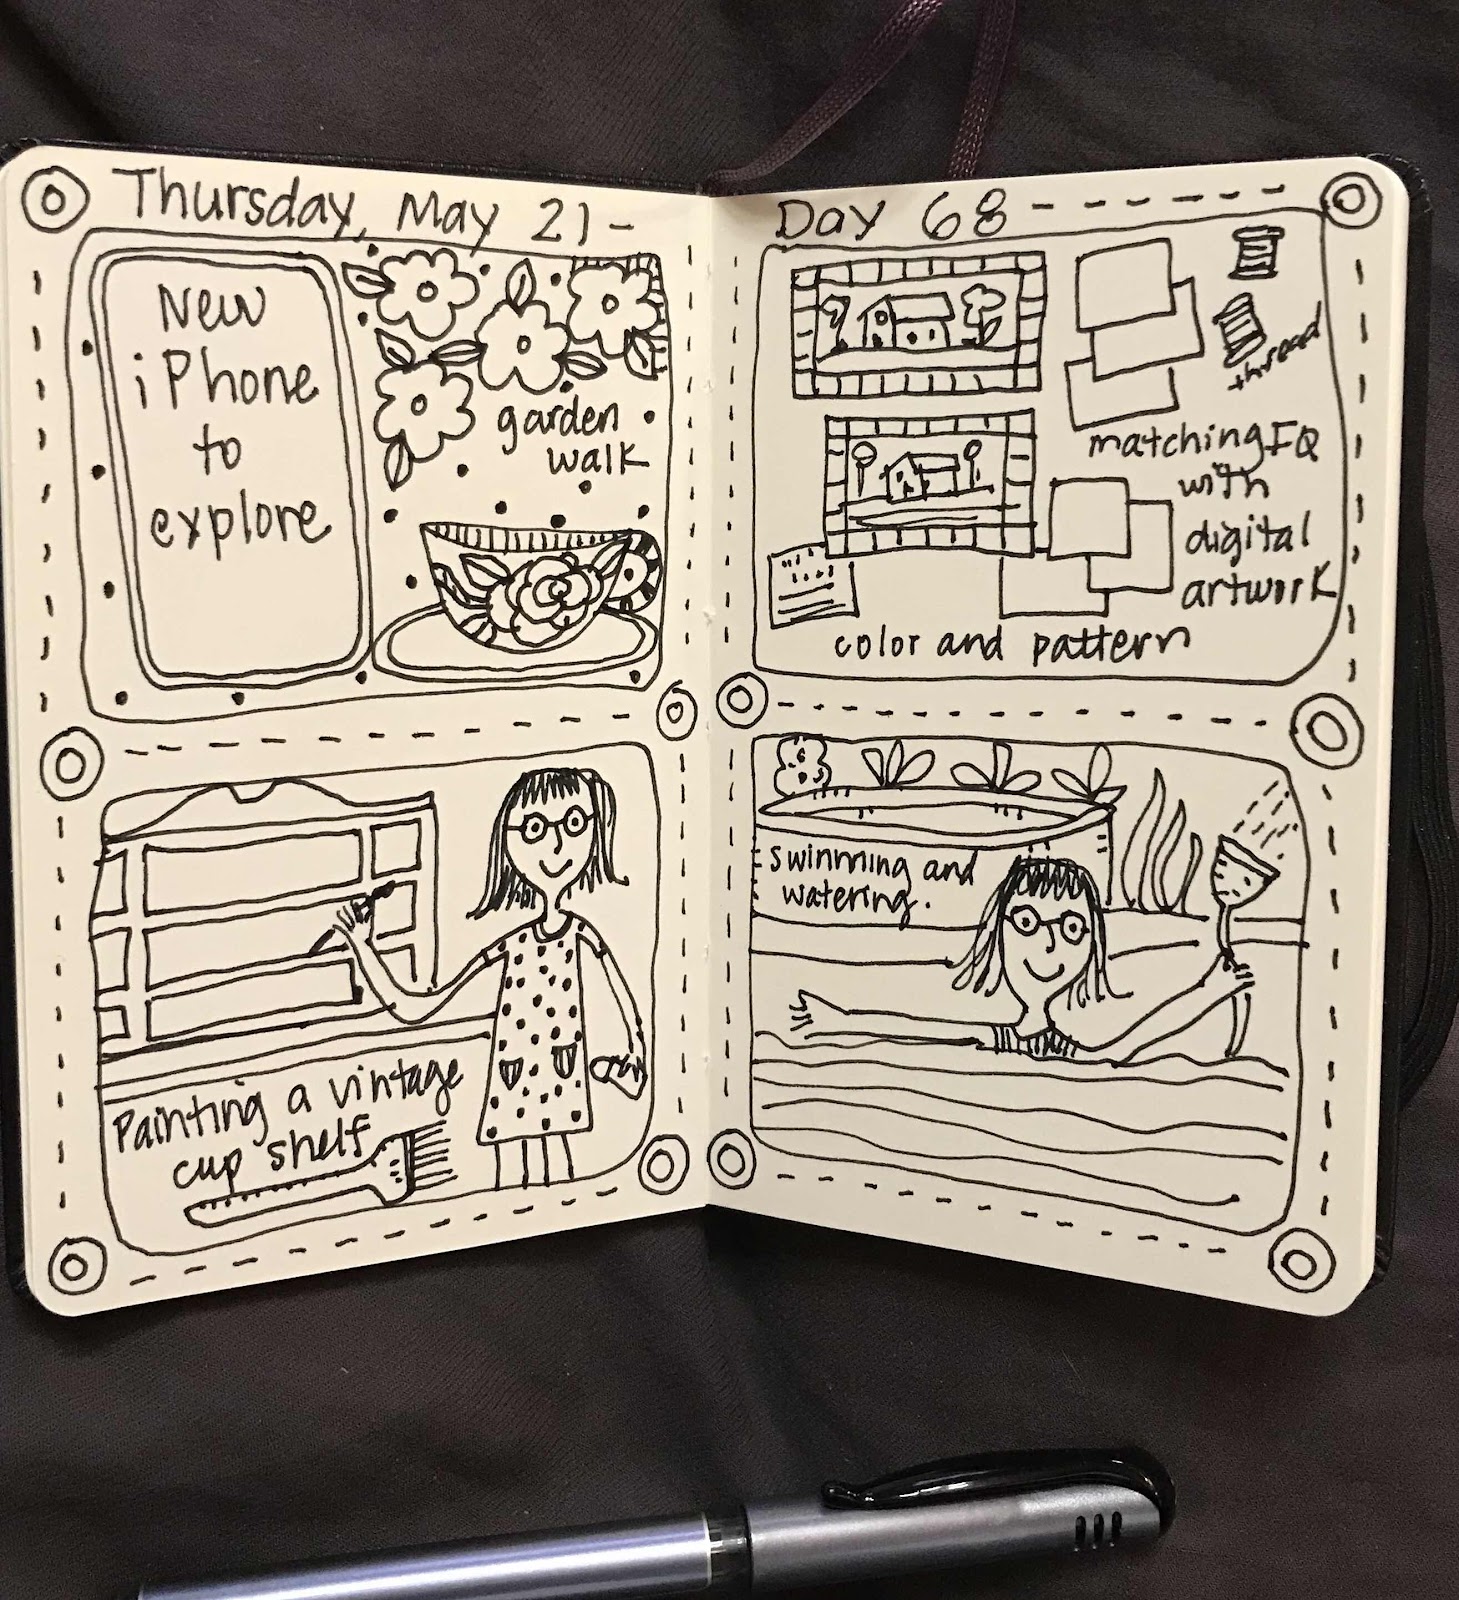 Thursday, May 21 -
New
iPhone
to
explore
garden
walk
Painting a vintage
cup shelf
Day 68
thread
matching FQ
with
digital
artwork
color and pattern
swimming and
watering.